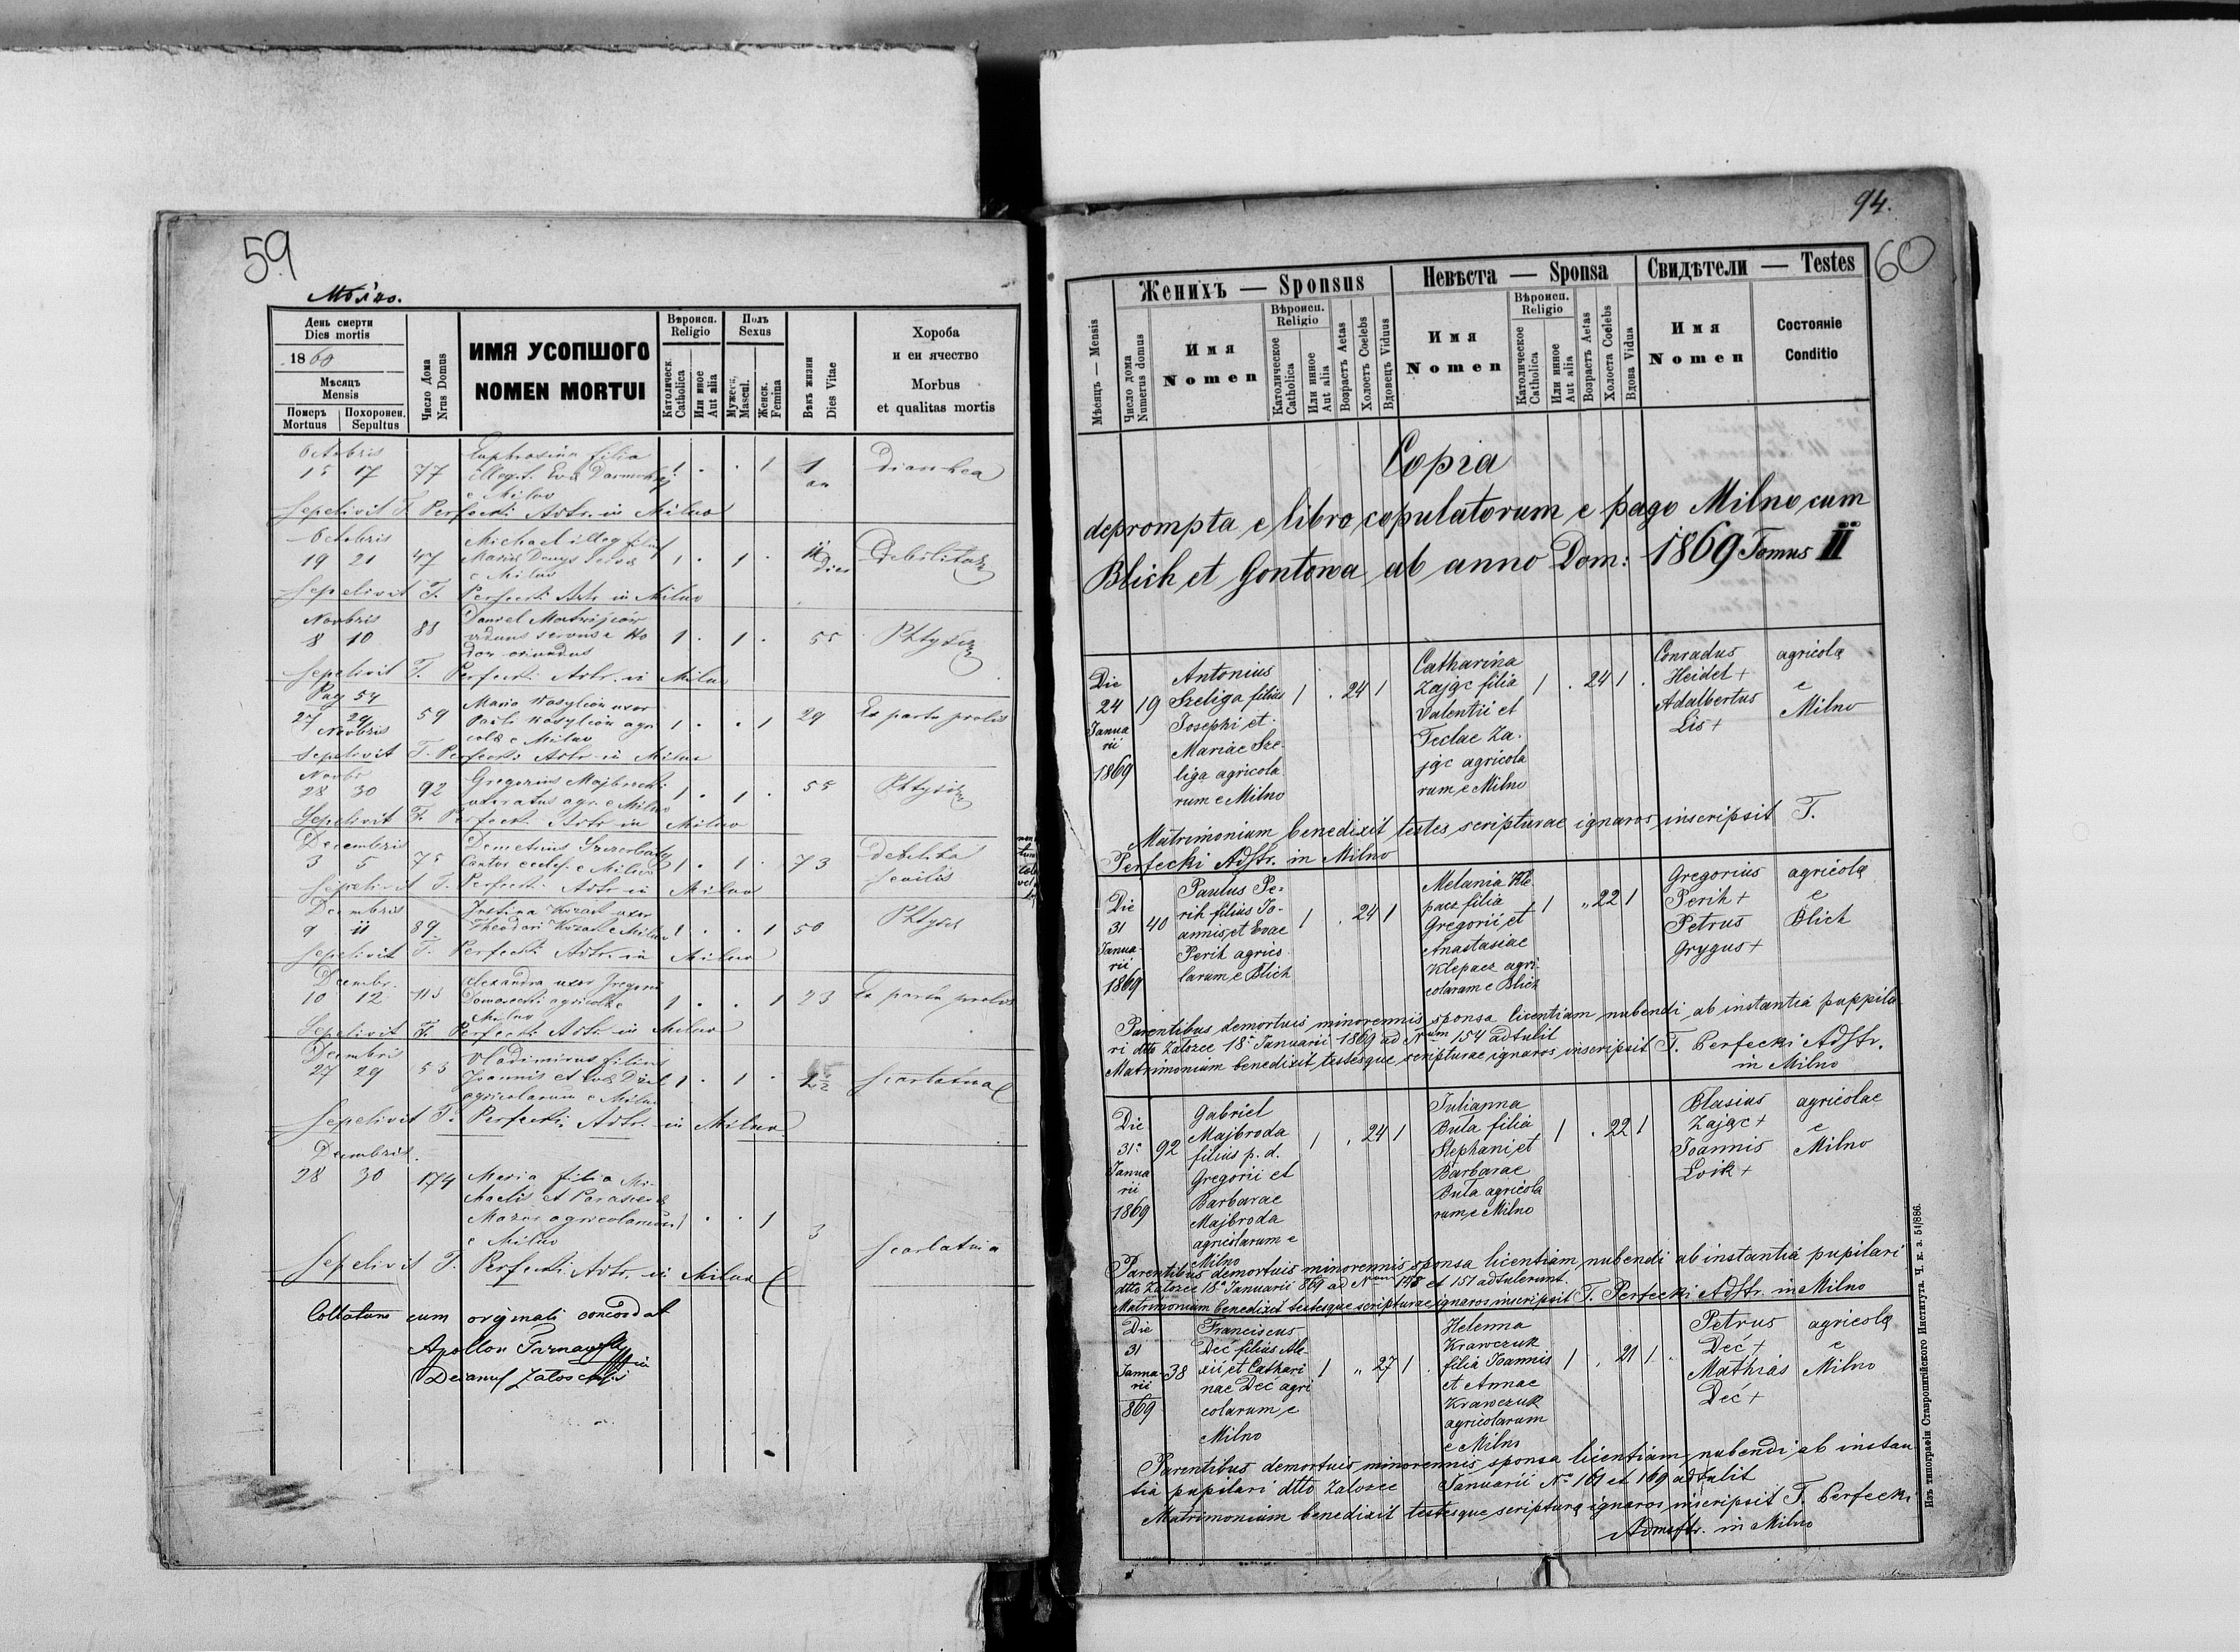 59
Мѣлно.
День смерти
Dies mortis
18
Мѣсяцъ
Mensis
Померъ
Mortuus
Похоронен.
Sepultus
Число Дома
Nrus Domus
ИМЯ УСОПШОГО
NOMEN MORTUI
Вѣроисп.
Religio
Католическ.
Catholica
Или иное
Aut alia
Полъ
Sexus
Мужеск.
Mascul.
Женск.
Femina
Вѣкъ жизни
Dies Vitae
Хороба
и еи ячество
Morbus
et qualitas mortis
Octobris
15 17 77 Euphrosina filia
illegit. Evae 1 . . 1 1 Diarrhea
e Milno
Sepelivit T. Perfecki Adtr. in Milno
Octobris
19 21 47 Michael illeg filius
Mariae Denys servae 1 . 1 . dies Debilitas
e Milno
Sepelivit T. Perfecki Adtr in Milno
Novbris
8 10 88 Daniel
viduus 1 . 1 . 55 Phtysis
oriundus
Sepelivit T. Perfecki Adtr. in Milno
Pag 54
27 29 59 Maria Wasylciów uxor
Novbris Pauli Wasylciów agri 1 . . 1 29 Ex partu prolis
colae e Milno
Sepelivit T. Perfecki Adtr in Milno
Novbr
28 30 92 Gregorius
uxoratus agr. e Milno 1 . 1 . 55 Phtysis
Sepelivit T. Perfecki Adtr in Milno
Decembris
3 5 75 Demetrius
Cantor eccles. e Milno 1 . 1 . 73 Debilitas
senilis
Sepelivit T. Perfecki Adtr in Milno
Decembris
9 11 89 Justina Kozak uxor
Theodori Kozak e Milno 1 . . 1 50 Phtysis
Sepelivit T. Perfecki Adtr. in Milno
Decembr.
10 12 113 Alexandra uxor Gregorii
agricolae 1 . . 1 23 Ex partu prolis
Milno
Sepelivit T. Perfecki Adtr in Milno
Decembris
27 29 53 Vladimirus filius
Joannis et Evae 1 . 1 . Scarlatina
agricolarum e Milno
Sepelivit T. Perfecki Adtr. in Milno
Decembris
28 30 174 Maria filia Mi-
chaelis et Parascevae
Mazur agricolarum 1 . . 1 3
e Milno Scarlatina
Sepelivit T. Perfecki Adtr. in Milno
Collatum cum originali concordat
Apollon
94.
60
Женихъ — Sponsus
Невѣста — Sponsa
Свидѣтели — Testes
Мѣсяцъ — Mensis
Число дома
Numerus domus
Имя
Nomen
Вѣроисп.
Religio
Католическое
Catholica
Или инное
Aut alia
Возрастъ Aetas
Холостъ Coelebs
Вдовецъ Viduus
Имя
Nomen
Вѣроисп.
Religio
Католическое
Catholica
Или инное
Aut alia
Возрастъ Aetas
Холоста Coelebs
Вдова Vidua
Имя
Nomen
Состояніе
Conditio
Copia
deprompta e libro copulatorum e pago Milno cum
Blich et Gontowa ab anno Dom: 1869 Tomus II
Die
24
Janua
rii
1869
19
Antonius
Szeliga filius
Josephi et
Mariae Sze-
liga agricola
rum e Milno
1 . 24 1
Catharina
Zając filia
Valentii et
Teclae Za-
jąc agricola
rum e Milno
1 . 24 1 .
Conradus
Heidel +
Adalbertus
Lis +
agricolę
e
Milno
Matrimonium benedixit testes scripturae ignaros inscripsit T.
Perfecki Adstr. in Milno
Die
31
Janua-
rii
1869
40
Paulus Pe-
rih filius Jo-
annis et Evae
Perih agrico
larum e Blich
1 . 24 1
Melania Kle
pacz filia
Gregorii et
Anastasiae
Klepacz agri-
colarum e Blich
1 „ 22 1
Gregorius
Perih +
Petrus
Grygus +
agricolę
e
Blich
Parentibus demortuis minorennis sponsa licentiam nubendi ab instantiá puppila
ri dtto Załozce 18ª Januarii 1869 ad Nrum 154 adtulit
Matrimonium benedixit testesque scripturae ignaros inscripsit T. Perfecki Adstr.
in Milno
Die
31ª
Janua
rii
1869
92
Gabriel
Majbroda
filius p. d.
Gregorii et
Barbarae
Majbroda
agricolarum e
Milno
1 . 24 1
Julianna
Buta filia
Stephani et
Barbarae
Buta agricola
rum e Milno
1 . 22 1
Blasius
Zając +
Joannis
Łoik +
agricolae
e
Milno
Parentibus demortuis minorennis sponsa licentiam nubendi ab instantiá pupilari
dtto Załozce 18ª Januarii 869 ad Nrum 148 et 151 adtulerunt.
Matrimonium benedixit testesque scripturae ignaros inscripsit T. Perfecki Adstr. in Milno
Die
31
Janua-
rii
869
38
Franciscus
Deć filius Ale-
xii et Cathari
nae Deć agri
colarum e
Milno
1 „ 27 1 .
Helenna
Krawczuk
filia Joannis
et Annae
Krawczuk
agricolarum
e Milno
1 . 21 1 .
Petrus
Deć +
Mathias
Deć +
agricolę
e
Milno
Parentibus demortuis minorennis sponsa licentiam nubendi ab instan
tia pupilari dtto Załozce Januarii No 161 et 169 adtulit
Matrimonium benedixit testesque scripturę ignaros inscripsit T. Perfecki
Admstr. in Milno
Изъ типографіи Ставропигійского Института. Ч. к. з. 51/886.